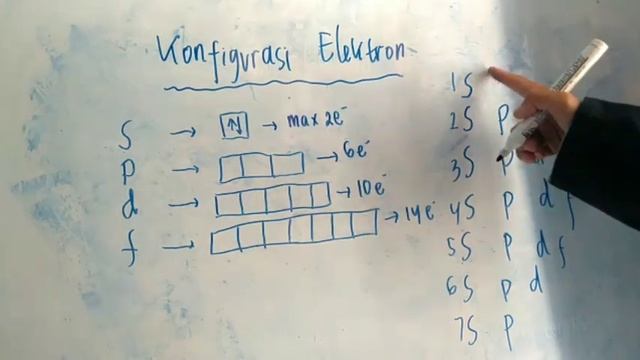 Konfigurasi Elektron
S → ↑↓ → max 2e⁻
p → → 6e⁻
d → → 10e⁻
f → → 14e⁻
1S
2S p
3S p d
4S p d f
5S p d f
6S p d
7S p